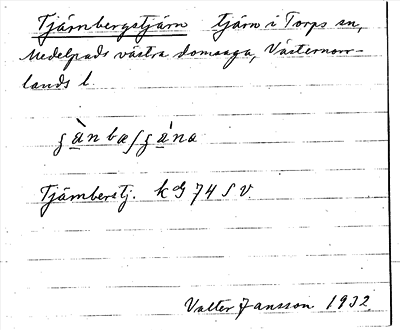 Tjärnbergstjärn tjärn i Torps sn,
Medelpads västra domsaga, Västernorr-
lands l.
Tjärnberstj. kG 74 S V
Valter Jansson 1932